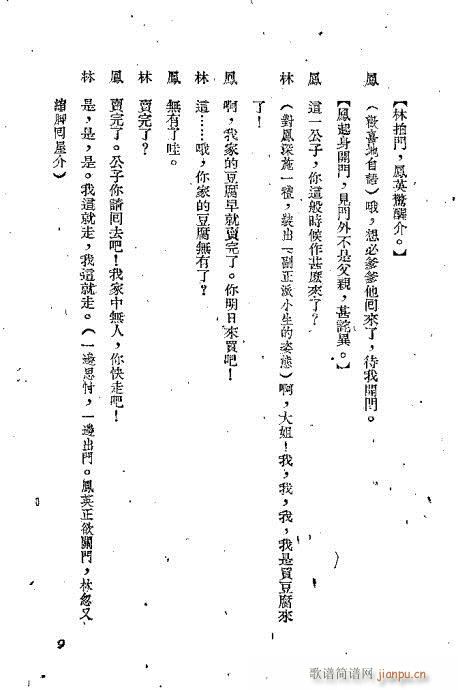 【林拍門，鳳英驚醒介。】
鳳 （歡喜地自語）哦，想必爹爹他回來了，待我開門。
【鳳起身開門，見門外不是父親，甚詫異。】
鳳 這一公子，你這般時候作甚麽來了？
林 （對鳳深施一禮，裝出一副正派小生的姿態）啊，大姐！我，我，我，我是買豆腐來
了！
鳳 啊，我家的豆腐早就賣完了。你明日來買吧！
林 這……哦，你家的豆腐無有了？
鳳 無有了哇。
林 賣完了？
鳳 賣完了。公子你請回去吧！我家中無人，你快走吧！
林 是，是，是。我這就走，我這就走。（一邊思忖，一邊出門。鳳英正欲關門，林忽又
縮脚回屋介）
9
歌谱简谱网
jianpu.cn